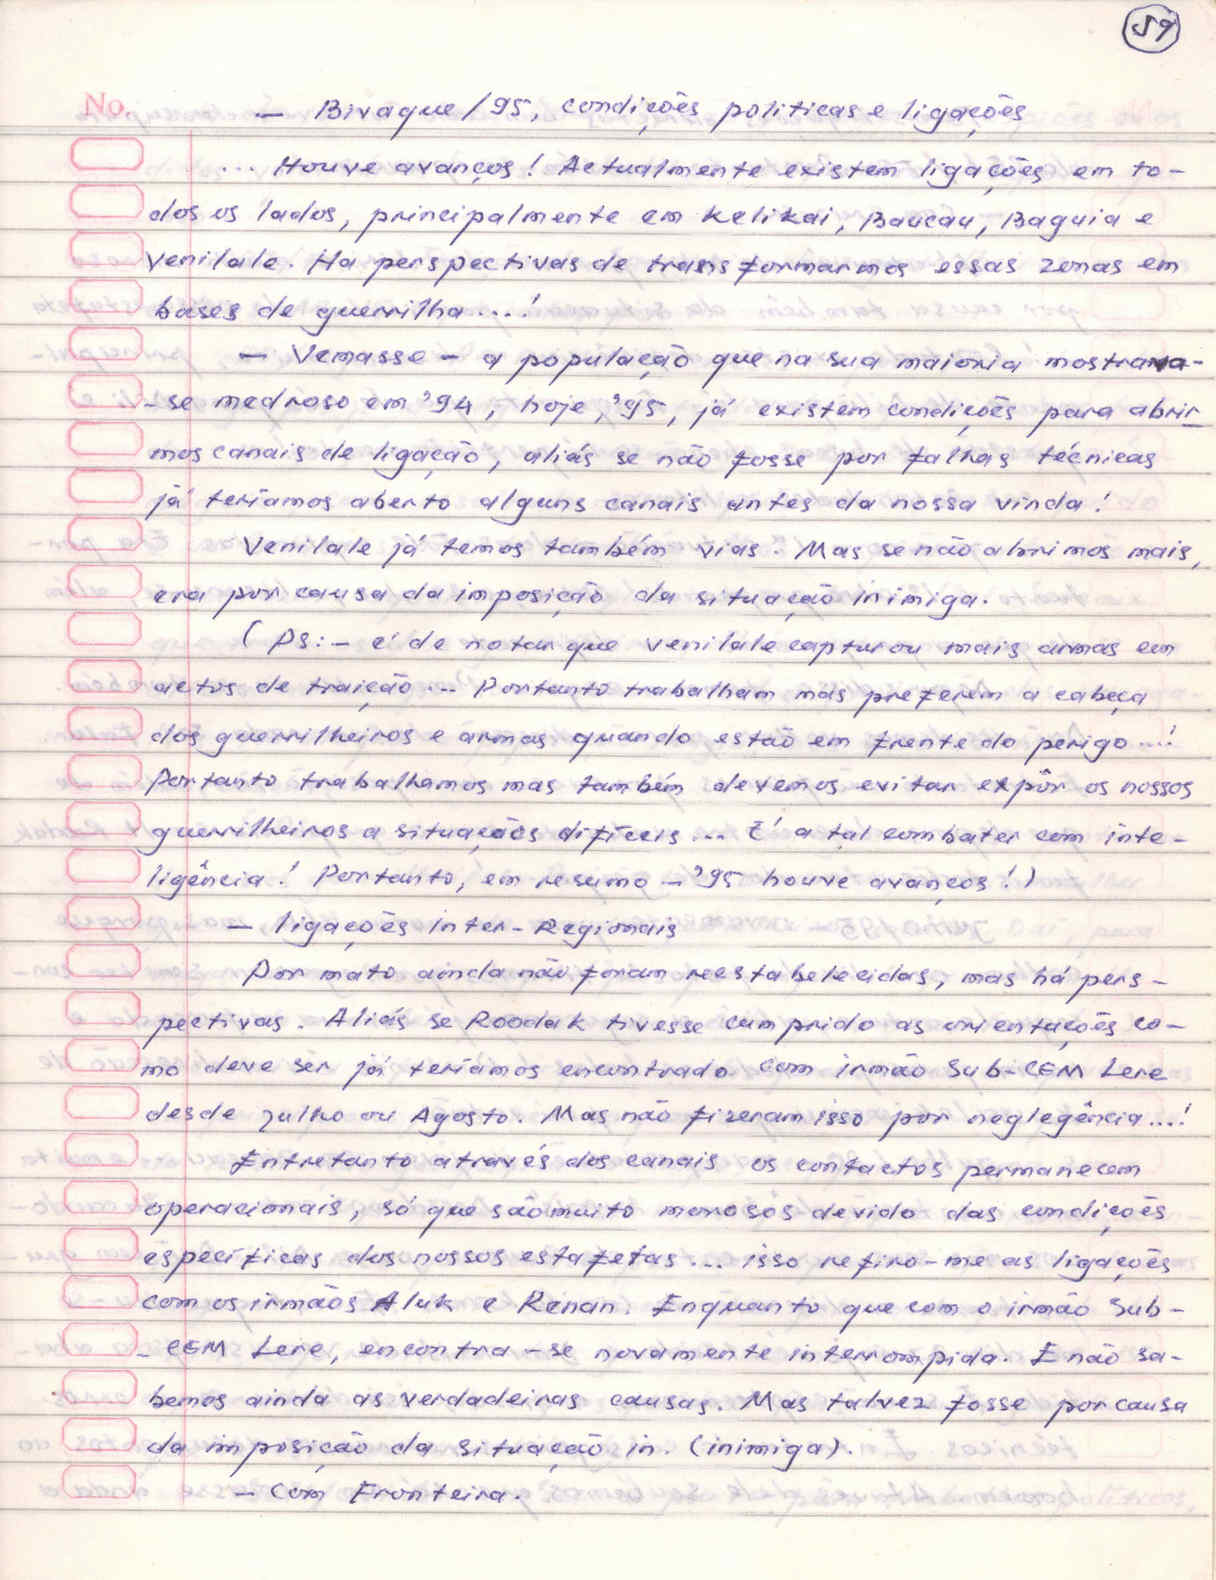 59
No.
— Bivaque/95, condições politicas e ligações
... Houve avanços! Actualmente existem ligações em to-
dos os lados, principalmente em Kelikai, Baucau, Baguia e
Venilale. Ha perspectivas de transformarmos essas zonas em
bases de guerrilha....!
— Vemasse - a população que na sua maioria mostrava-
-se medroso em '94, hoje, '95, já existem condições para abrir
mos canais de ligação, aliás se não fosse por falhas técnicas
já teríamos aberto alguns canais antes da nossa vinda!
Venilale já temos também vias. Mas se não abrimos mais,
era por causa da imposição da situação inimiga.
(PS:- é de notar que Venilale capturou mais armas em
actos de traição... Portanto trabalham mas preferem a cabeça
dos guerrilheiros e armas quando estão em frente do perigo...!
Portanto trabalhamos mas também devemos evitar expôr os nossos
guerrilheiros a situações difíceis... É a tal combater com inte-
ligência! Portanto, em resumo - '95 houve avanços!)
— ligações Inter-Regionais
Por mato ainda não foram reestabelecidas, mas há pers-
pectivas. Aliás se Roodak tivesse cumprido as orientações co-
mo deve ser já teríamos encontrado com irmão Sub-CEM Lere
desde Julho ou Agosto. Mas não fizeram isso por neglegência....!
Entretanto através dos canais os contactos permanecem
operacionais, só que são muito morosos devido das condições
específicas dos nossos estafetas... isso refiro-me as ligações
com os irmãos Aluk e Renan. Enquanto que com o irmão Sub-
-CEM Lere, encontra-se novamente interrompida. E não sa-
bemos ainda as verdadeiras causas. Mas talvez fosse por causa
da imposição da situação in. (inimiga).
— Com Fronteira.